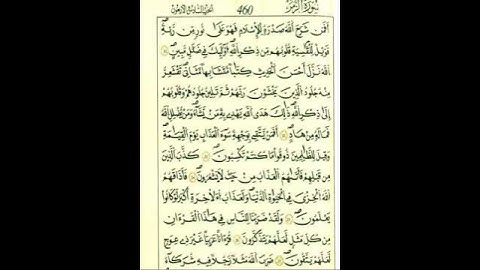 سورة الزمر 460 الجزء الثالث والعشرون
أفمن شرح الله صدره للإسلام فهو على نور من ربه
فويل للقاسية قلوبهم من ذكر الله أولئك في ضلال مبين
الله نزل أحسن الحديث كتابا متشابها مثاني تقشعر
منه جلود الذين يخشون ربهم ثم تلين جلودهم وقلوبهم
إلى ذكر الله ذلك هدى الله يهدي به من يشاء ومن يضلل الله
فما له من هاد أفمن يتقي بوجهه سوء العذاب يوم القيامة
وقيل للظالمين ذوقوا ما كنتم تكسبون كذب الذين
من قبلهم فأتاهم العذاب من حيث لا يشعرون فأذاقهم
الله الخزي في الحياة الدنيا ولعذاب الآخرة أكبر لو كانوا
يعلمون ولقد ضربنا للناس في هذا القرءان
من كل مثل لعلهم يتذكرون قرءانا عربيا غير ذي عوج
لعلهم يتقون ضرب الله مثلا رجلا فيه شركاء